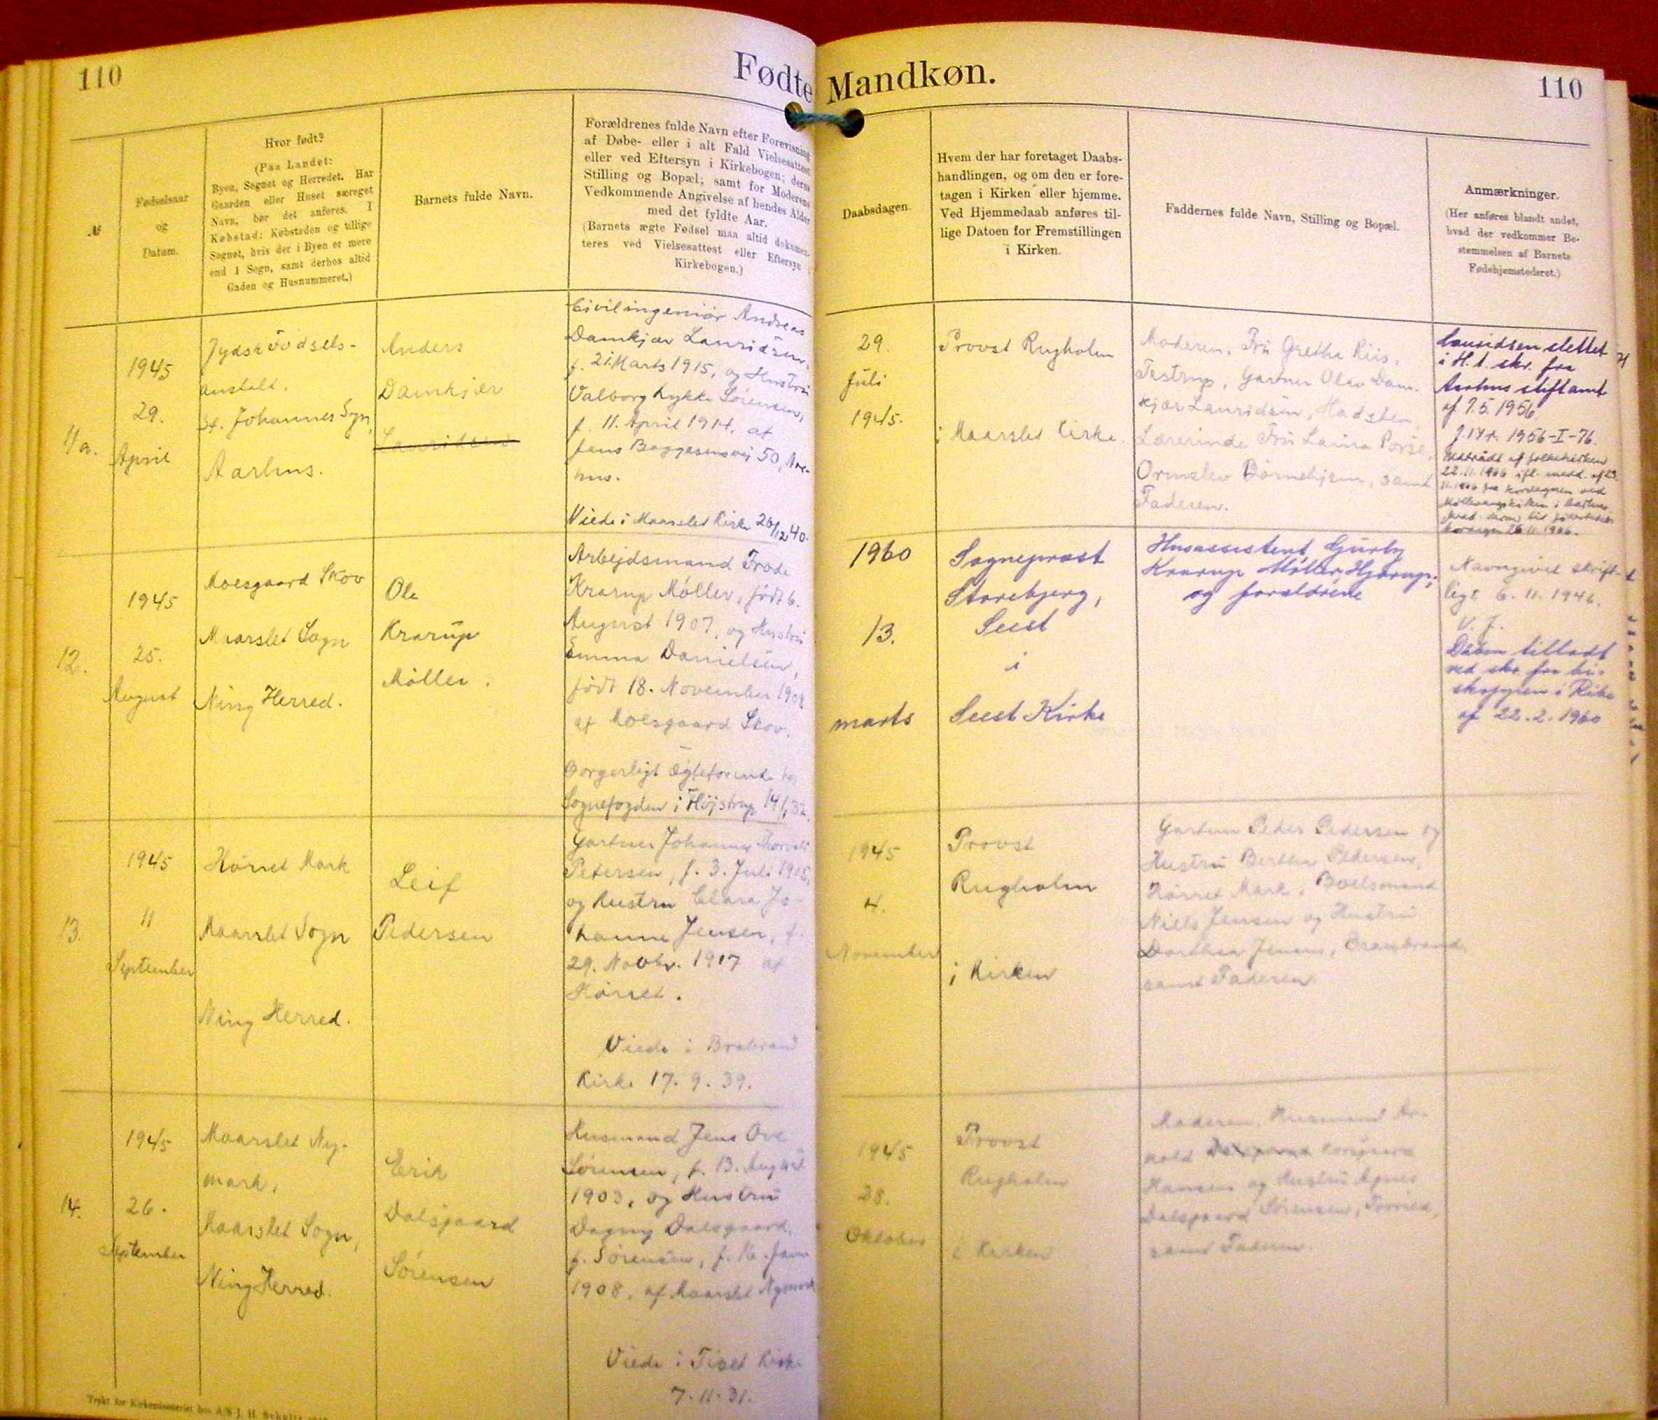 110
Fødte
Mandkøn.
110
№
Fødselsaar
og
Datum.
Hvor født?
(Paa Landet:
Byen, Sognet og Herredet. Har
Gaarden eller Huset særeget
Navn, bør det anføres. I
Købstad: Købstaden og tillige
Sognet, hvis der i Byen er mere
end 1 Sogn, samt derhos altid
Gaden og Husnummeret.)
Barnets fulde Navn.
Forældrenes fulde Navn efter Forevisning
af Døbe- eller i alt Fald Vielsesattest
eller ved Eftersyn i Kirkebogen; deres
Stilling og Bopæl; samt for Moderens
Vedkommende Angivelse af hendes Alder
med det fyldte Aar.
(Barnets ægte Fødsel maa altid dokumen-
teres ved Vielsesattest eller Eftersyn i
Kirkebogen.)
Daabsdagen.
Hvem der har foretaget Daabs-
handlingen, og om den er fore-
tagen i Kirken eller hjemme.
Ved Hjemmedaab anføres til-
lige Datoen for Fremstillingen
i Kirken.
Faddernes fulde Navn, Stilling og Bopæl.
Anmærkninger.
(Her anføres blandt andet,
hvad der vedkommer Be-
stemmelsen af Barnets
Fødehjemstedsret.)
11a.
1945
29.
April
Jydsk Fødsels-
anstalt.
St. Johannes Sogn,
Aarhus.
Anders
Damkjær
Lauridsen
Civilingeniør Andreas
Damkjær Lauridsen,
f. 21 Marts 1915, og Hustru
Valborg Lykke Sørensen,
f. 11. April 1914, af
Jens Baggesensvej 50, Aar-
hus.
Viede i Maarslet Kirke 26/12 40.
29.
Juli
1945.
Provst Rugholm
i Maarslet Kirke.
Moderen, Fru Grethe Riis,
Tastrup, Gartner Olav Dam-
kjær Lauridsen, Hadsten,
Lærerinde Fru Laura Porse,
Ormslev Børnehjem, samt
Faderen.
Lauridsen slettet
i H. t. skr. fra
Aarhus stiftamt
af 7.5.1956
J. Nr. 1956-I-76.
Udtrådt af folkekirken
12.
1945
25.
August
Moesgaard Skov
Maarslet Sogn
Ning Herred.
Ole
Krarup
Møller.
Arbejdsmand Frode
Krarup Møller, født 6.
August 1907, og Hustru
Emma Danielsen,
født 18. November 1902
af Moesgaard Skov.
Borgerligt ægteforenede hos
Sognefogden i Højstrup
1960
13.
marts
Sognepræst
Storebjerg,
Seest
i
Seest Kirke
Husassistent Gjurby
Krarup Møller, Hjarup;
og forældrene
Navngivet skrift-
ligt 6.11.1946.
V. J.
Dåben tilladt
ved skr. fra bi-
skoppen i Ribe
af 22.2.1960
13.
1945
11
September
Hørret Mark
Maarslet Sogn
Ning Herred.
Leif
Pedersen
Gartner Johannes Thorvald
Petersen, f. 3. Juli 1905,
og Hustru Clara Jo-
hanne Jensen, f.
29. Novbr. 1917 af
Hørret.
Viede i Brabrand
Kirke 17. 9. 39.
1945
4.
November
Provst
Rugholm
i Kirken
Gartner Peder Pedersen og
Hustru Berthe Pedersen,
Hørret Mark, Boelsmand
Niels Jensen og Hustru
Dorthea Jensen, Brabrand
samt Faderen.
14.
1945
26.
September
Maarslet Ny-
mark,
Maarslet Sogn,
Ning Herred.
Erik
Dalsgaard
Sørensen
Husmand Jens Ove
Sørensen, f. 13. August
1903, og Hustru
Dagny Dalsgaard,
f. Sørensen, f. 16. Janu
1908, af Maarslet Nymark
Viede i Tiset Kirke
7. 11. 31.
1945
28.
Oktober
Provst
Rugholm
i Kirken
Moderen, Husmand Ar-
nold
Hansen og Hustru Agnes
Dalsgaard Sørensen,
samt Faderen.